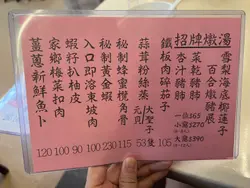 招牌燉湯
雪梨海底椰蓮子
百合燉豬展
菜乾豬肺
杏汁豬肺
一位$65
小窩$270
大窩$390
鐵板肉碎茄子
105
蒜茸粉絲蒸
大聖子
元貝
隻
53
秘制蜂蜜欖角骨
115
秘制黃金蝦
230
入口即溶東坡肉
100
蝦籽扒柚皮
90
家鄉梅菜扣肉
100
薑蔥新鮮魚卜
120